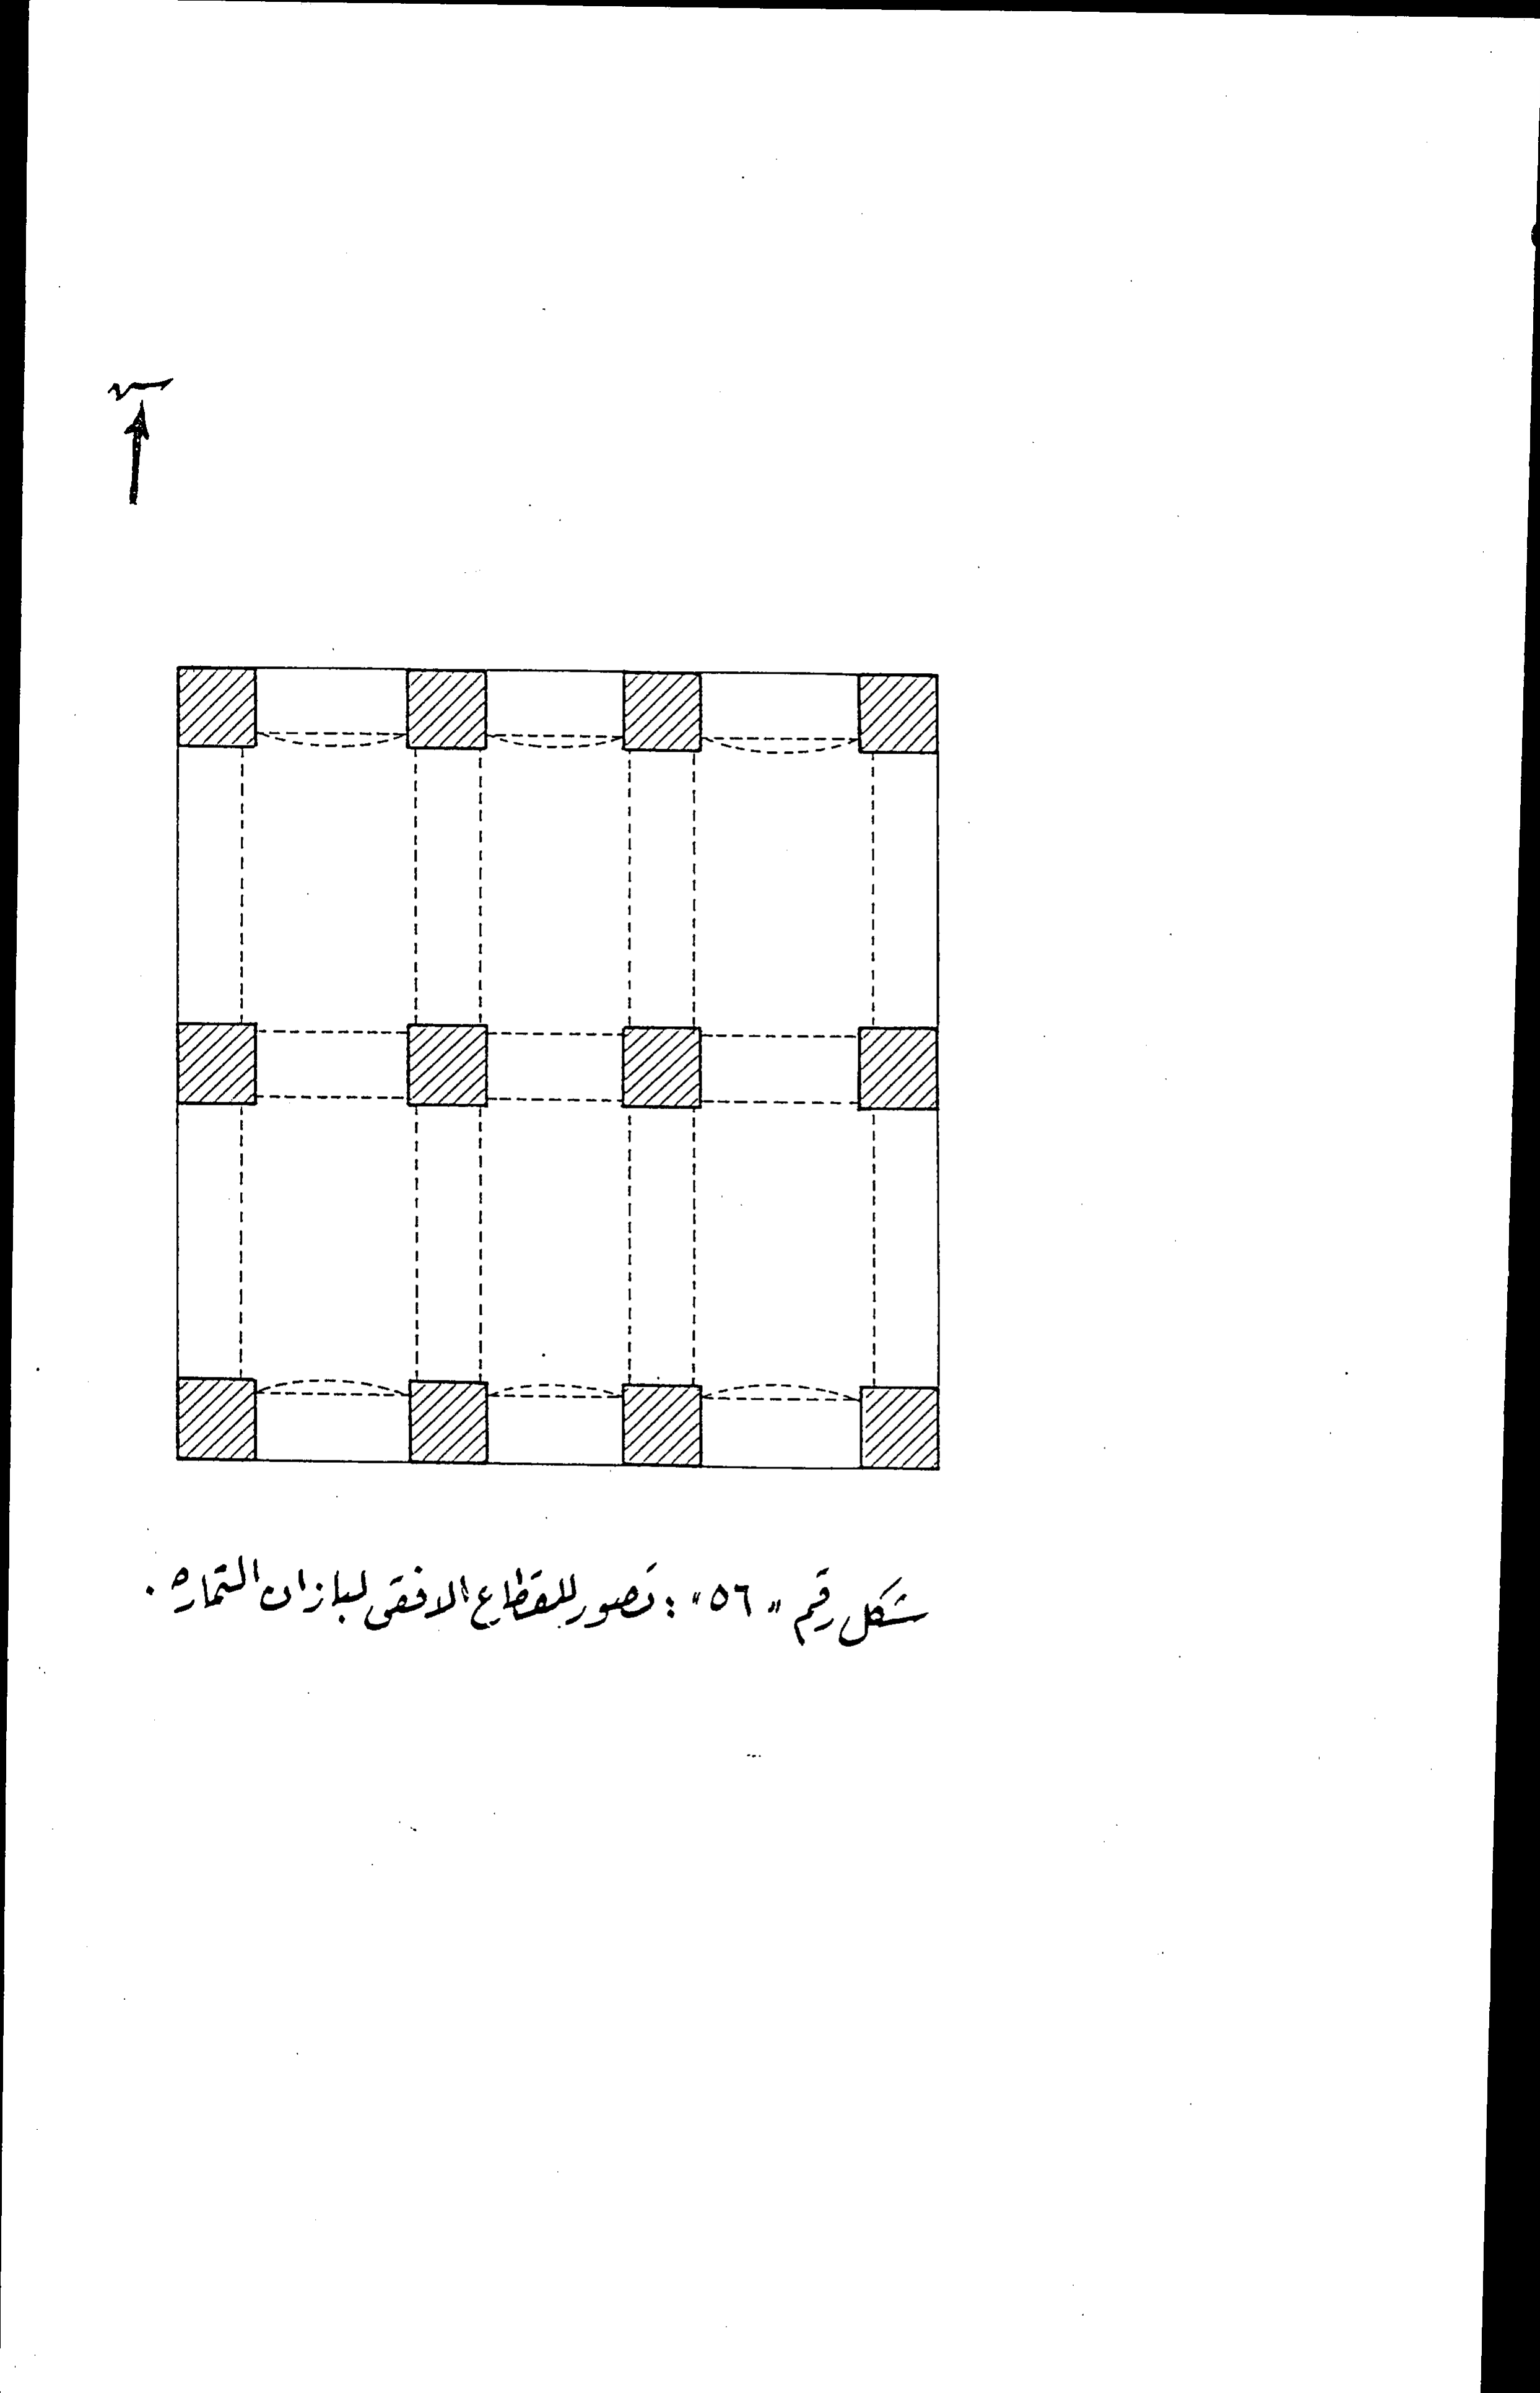 شكل رقم "٥٦" : تصور للقطاع الافقى لبازان التماره .